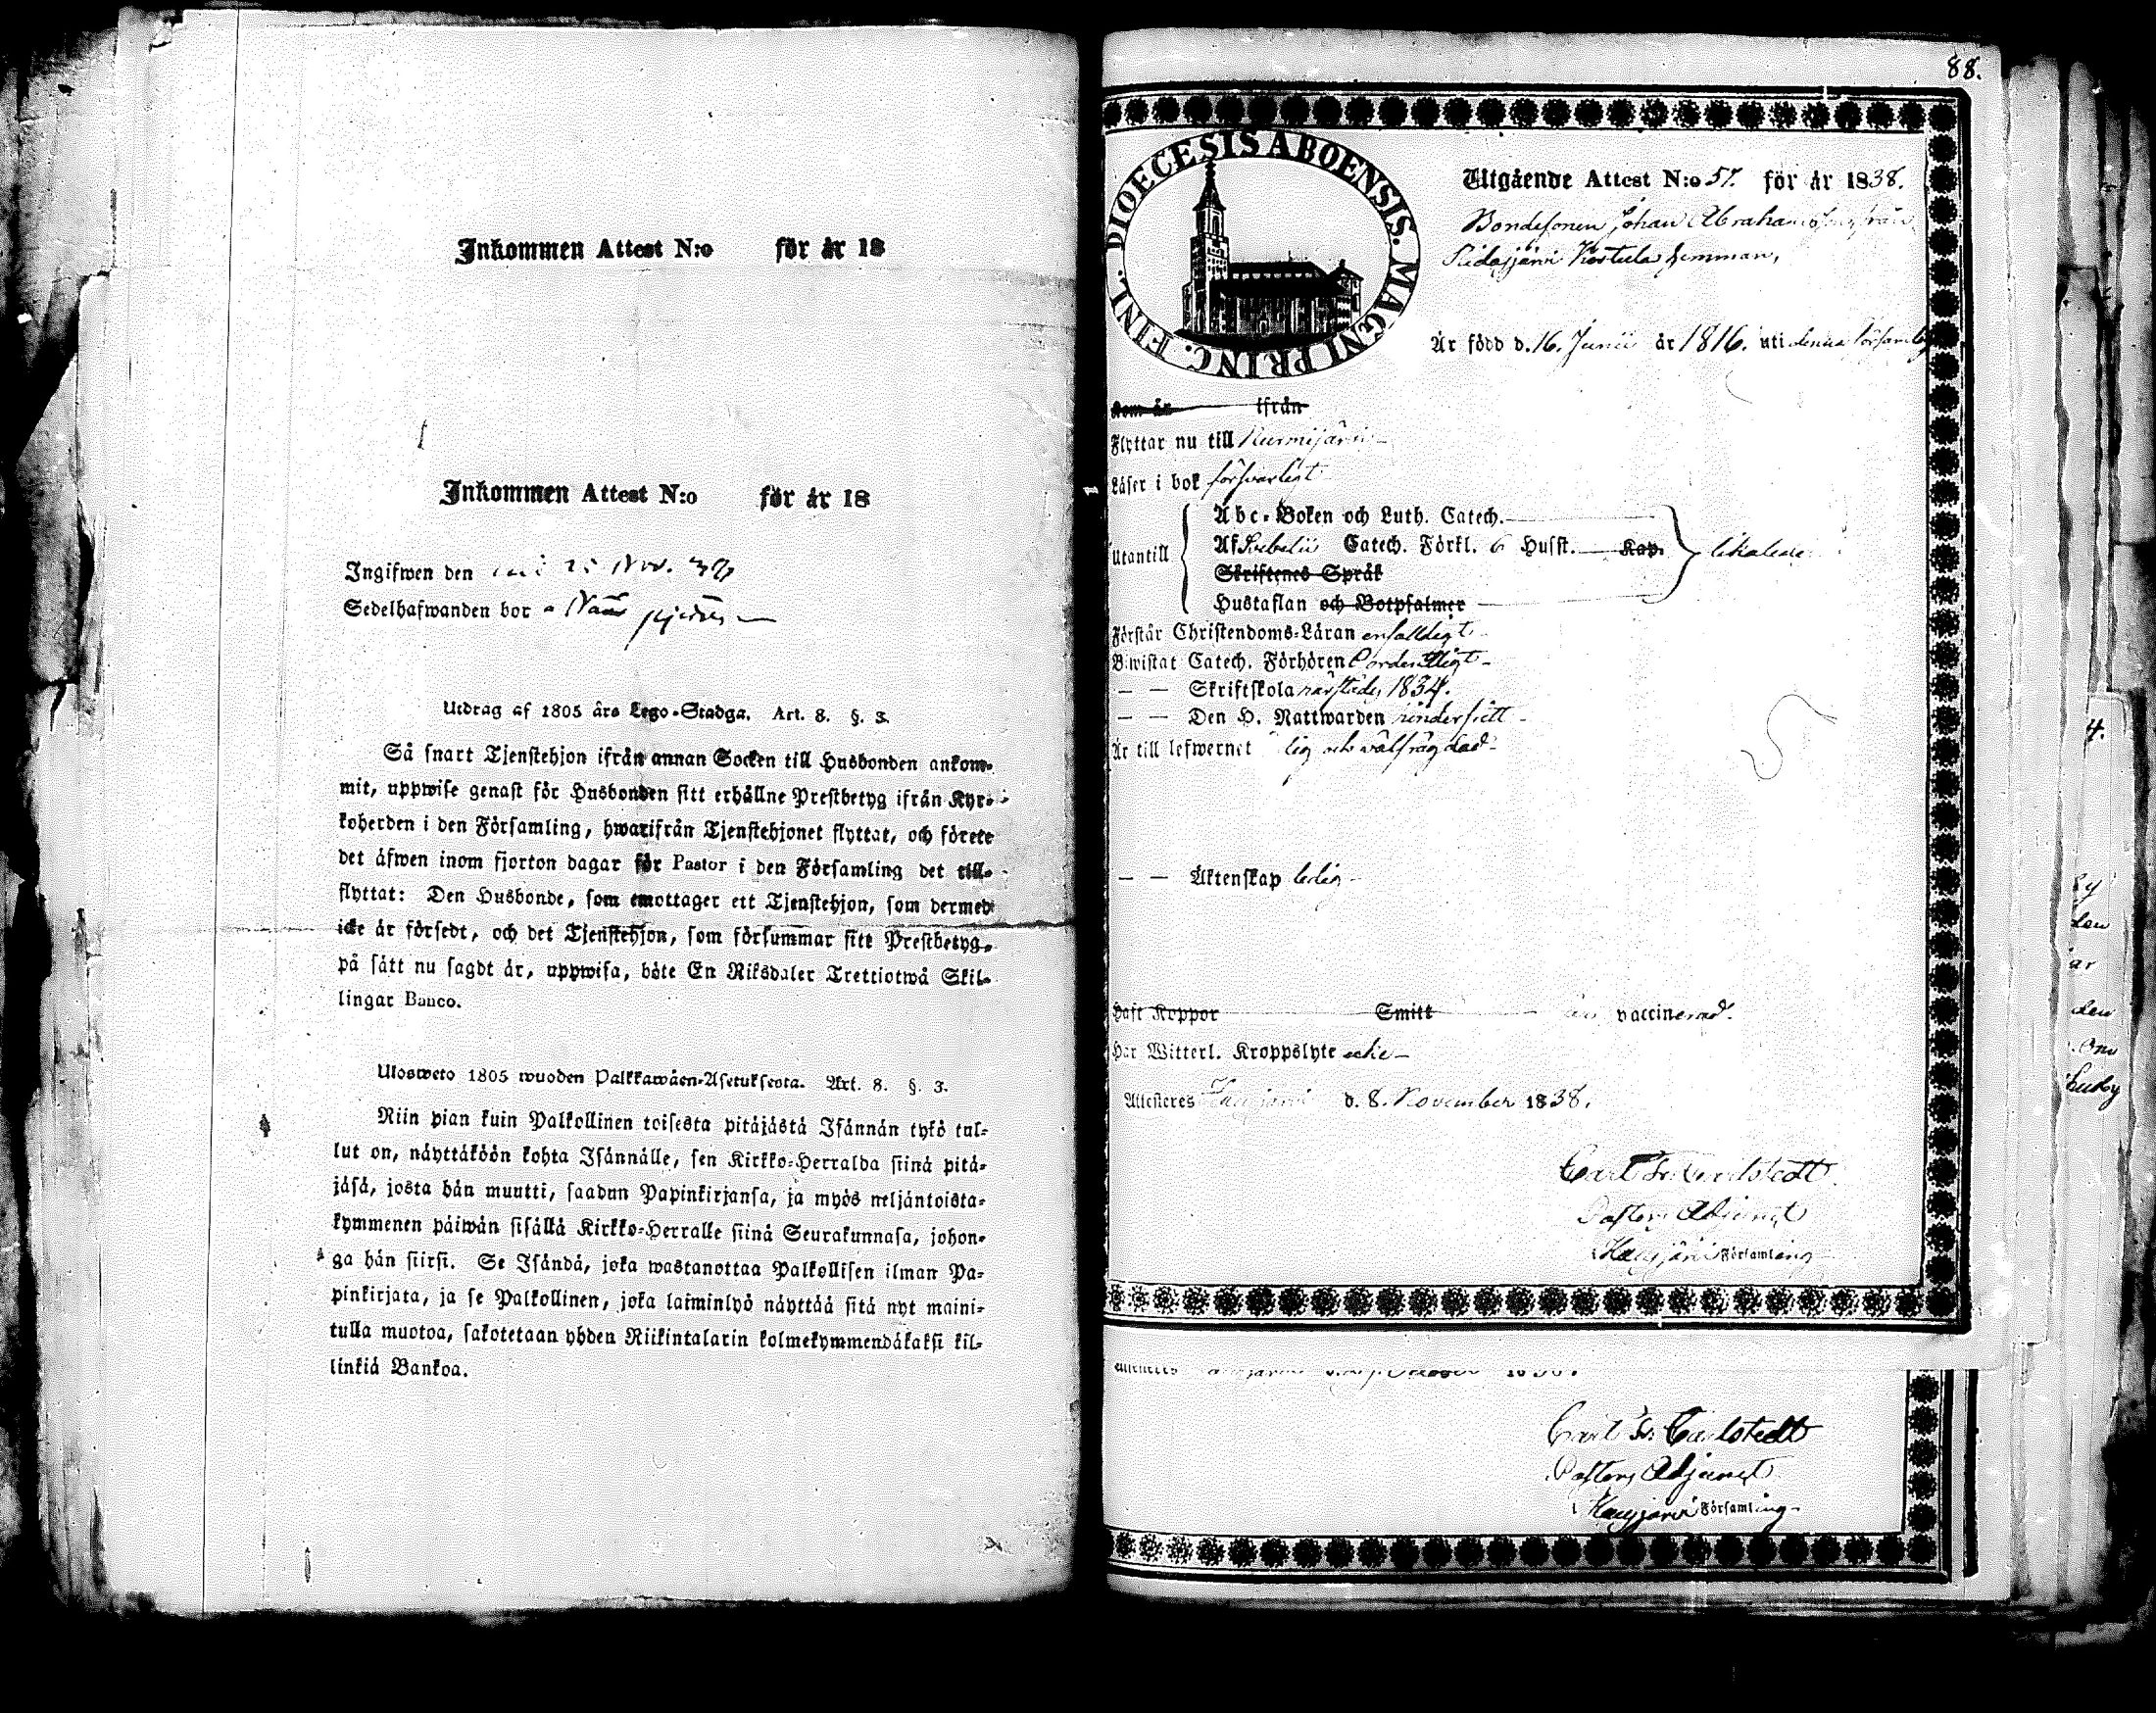 Inkommen Attest N:o för år 18
Inkommen Attest N:o för år 18
Ingifwen den 25 Nov.
Sedelhafwanden bor
Utdrag af 1805 års Lego-Stadga. Art. 8. §. 3.
Så snart Tjenstehjon ifrån annan Socken till Husbonden ankom-
mit, uppwise genast för Husbonden sitt erhållne Prestbetyg ifrån Kyr-
koherden i den Församling, hwarifrån Tjenstehjonet flyttat, och förete
det äfwen inom fjorton dagar för Pastor i den Församling det till-
flyttat: Den Husbonde, som emottager ett Tjenstehjon, som dermed
icke är försedt, och det Tjenstehjon, som försummar sitt Prestbetyg,
på sätt nu sagdt är, uppwisa, böte En Riksdaler Trettiotwå Skil-
lingar Banco.
Ulosweto 1805 wuoden Palkkawäen-Asetuksesta. Art. 8. §. 3.
Niin pian kuin Palkollinen toisesta pitäjästä Isännän tykö tul-
lut on, näyttäköön kohta Isännälle, sen Kirkko-Herralda siinä pitä-
jäsä, josta hän muutti, saadun Papinkirjansa, ja myös neljäntoista-
kymmenen päiwän sisällä Kirkko-Herralle siinä Seurakunnasa, johon-
ga hän siirsi. Se Isändä, joka wastanottaa Palkollisen ilman Pa-
pinkirjata, ja se Palkollinen, joka laiminlyö näyttää sitä nyt maini-
tulla muotoa, sakotetaan yhden Riikintalarin kolmekymmendäkaksi kil-
linkiä Bankoa.
88.
DIOECESIS ABOENSIS. MAGNI PRINC. FINL.
Utgående Attest N:o 57. för år 1838.
Bondesonen Johan Abrahamsson från
Hemman,
Är född d. 16. Junii år 1816. uti denna Församling
Kom år ifrån
Flyttar nu till Nurmijärvi
Läser i bok försvarligt
Utantill
Abc-Boken och Luth. Catech.
Af Svebelii Catech. Förkl. 6 Husst. Kap.
Skriftenes Språk
Hustaflan och Botpsalmer
likaledes
Förstår Christendoms-Läran enfaldigt
Biwistat Catech. Förhören ordentligt
— — Skriftskola härstädes 1834.
— — Den H. Nattwarden
Är till lefwernet och välfrägdad
— — Äktenskap ledig
Haft Koppor Smitt är vaccinerad.
Har Witterl. Kroppslyte icke
Attesteres Hausjärvi d. 8. November 1838.
Carl Fr. Carlstedt
Pastors Adjunct
i Hausjärvi Församling
Carl Fr. Carlstedt
Pastors Adjunct
i Hausjärvi Församling
4.